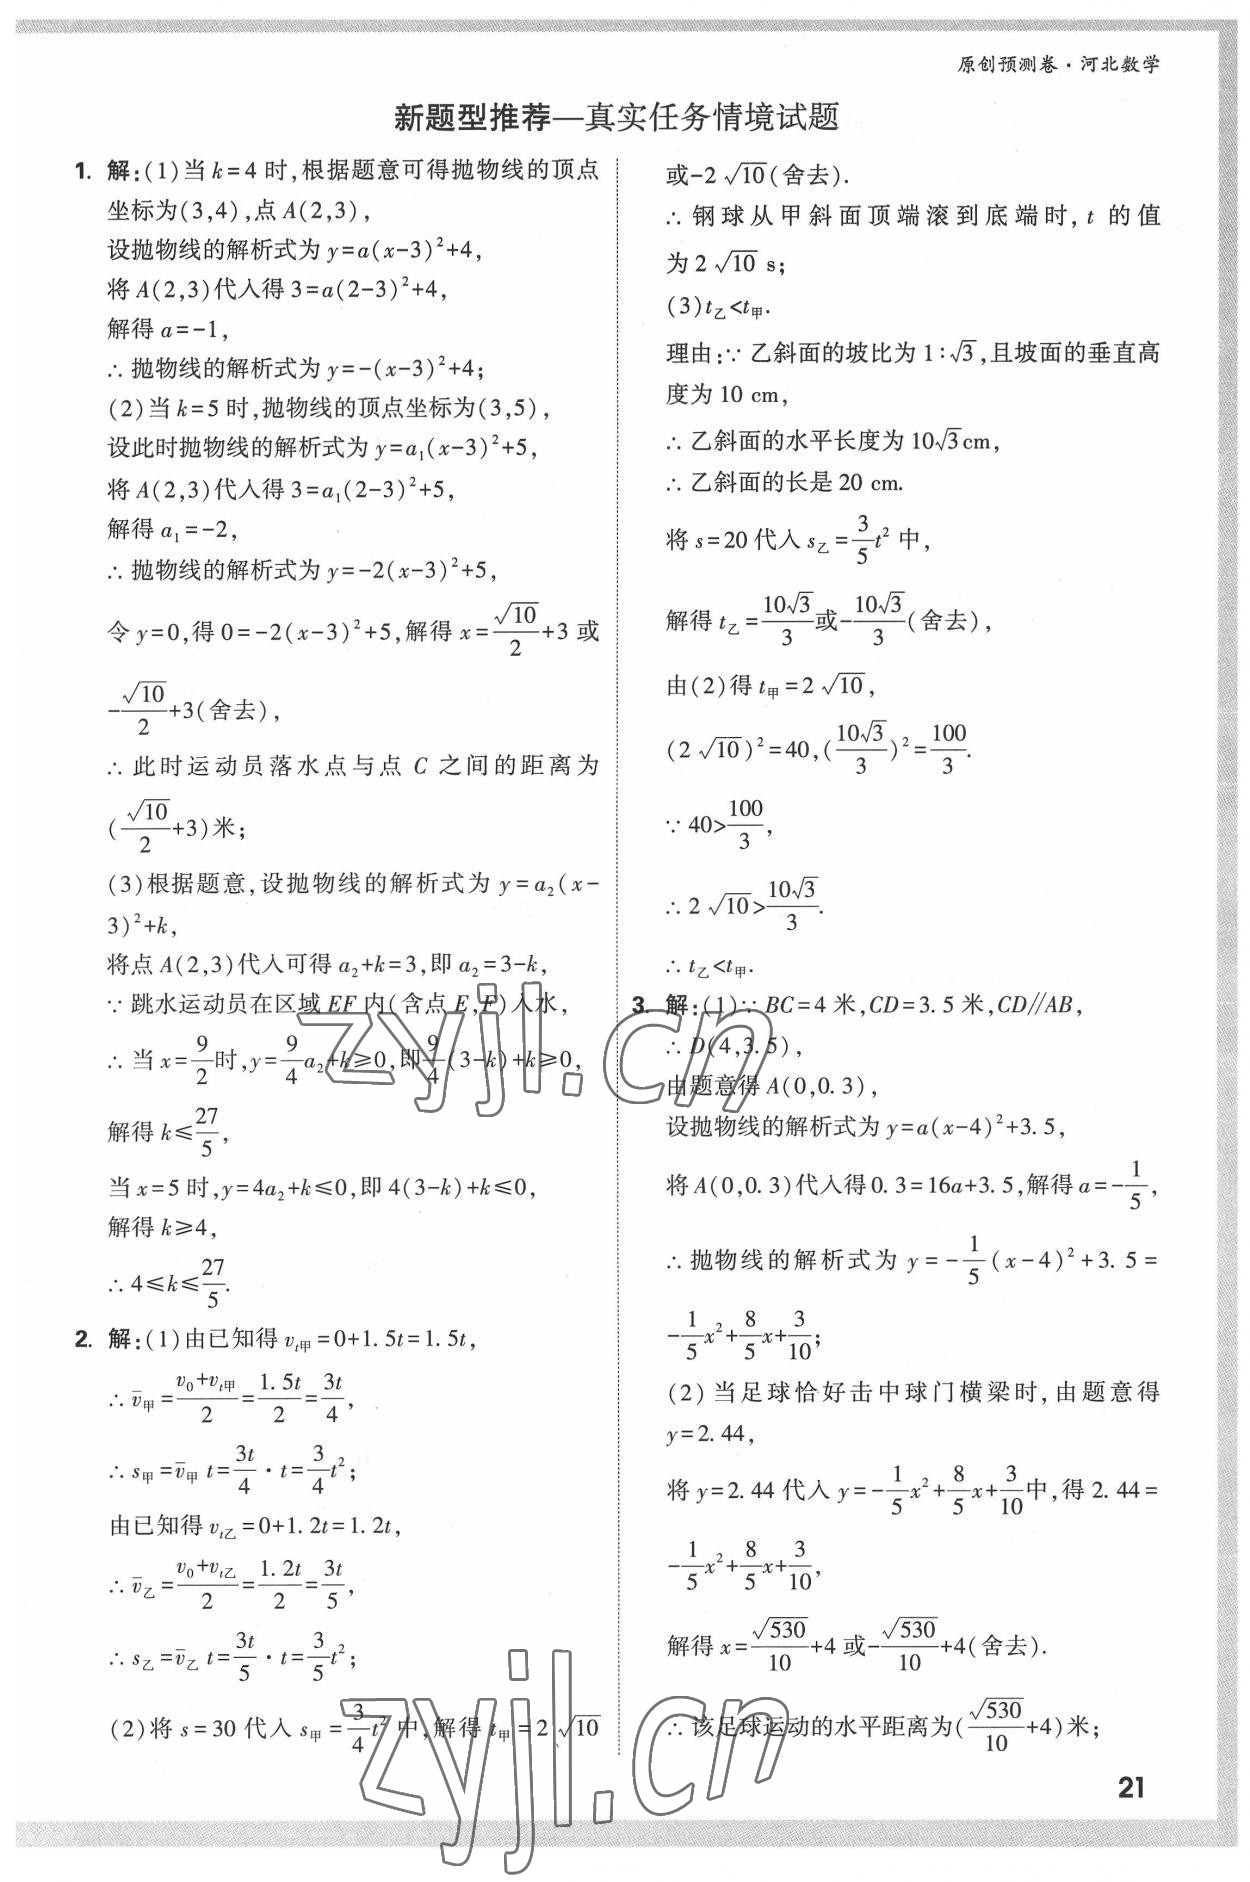 原创预测卷·河北数学
新题型推荐—真实任务情境试题
1. 解:(1)当k=4时,根据题意可得抛物线的顶点
坐标为(3,4),点A(2,3),
设抛物线的解析式为y=a(x-3)²+4,
将A(2,3)代入得3=a(2-3)²+4,
解得a=-1,
∴抛物线的解析式为y=-(x-3)²+4;
(2)当k=5时,抛物线的顶点坐标为(3,5),
设此时抛物线的解析式为y=a₁(x-3)²+5,
将A(2,3)代入得3=a₁(2-3)²+5,
解得a₁=-2,
∴抛物线的解析式为y=-2(x-3)²+5,
令y=0,得0=-2(x-3)²+5,解得x=√10/2+3或
-√10/2+3(舍去),
∴此时运动员落水点与点C之间的距离为
(√10/2+3)米;
(3)根据题意,设抛物线的解析式为y=a₂(x-
3)²+k,
将点A(2,3)代入可得a₂+k=3,即a₂=3-k,
∵跳水运动员在区域EF内(含点E,F)入水,
∴当x=9/2时,y=9/4a₂+k≥0,即9/4(3-k)+k≥0,
解得k≤27/5,
当x=5时,y=4a₂+k≤0,即4(3-k)+k≤0,
解得k≥4,
∴4≤k≤27/5.
2. 解:(1)由已知得vₜ甲=0+1.5t=1.5t,
∴v̄甲=(v₀+vₜ甲)/2=1.5t/2=3t/4,
∴s甲=v̄甲 t=3t/4·t=3/4t²;
由已知得vₜ乙=0+1.2t=1.2t,
∴v̄乙=(v₀+vₜ乙)/2=1.2t/2=3t/5,
∴s乙=v̄乙 t=3t/5·t=3/5t²;
(2)将s=30代入s甲=3/4t²中,解得t甲=2√10
或-2√10(舍去).
∴钢球从甲斜面顶端滚到底端时,t的值
为2√10 s;
(3)t乙<t甲.
理由:∵乙斜面的坡比为1∶√3,且坡面的垂直高
度为10 cm,
∴乙斜面的水平长度为10√3cm,
∴乙斜面的长是20 cm.
将s=20代入s乙=3/5t²中,
解得t乙=10√3/3或-10√3/3(舍去),
由(2)得t甲=2√10,
(2√10)²=40,(10√3/3)²=100/3.
∵40>100/3,
∴2√10>10√3/3.
∴t乙<t甲.
3. 解:(1)∵BC=4米,CD=3.5米,CD∥AB,
∴D(4,3.5),
由题意得A(0,0.3),
设抛物线的解析式为y=a(x-4)²+3.5,
将A(0,0.3)代入得0.3=16a+3.5,解得a=-1/5,
∴抛物线的解析式为y=-1/5(x-4)²+3.5=
-1/5x²+8/5x+3/10;
(2)当足球恰好击中球门横梁时,由题意得
y=2.44,
将y=2.44代入y=-1/5x²+8/5x+3/10中,得2.44=
-1/5x²+8/5x+3/10,
解得x=√530/10+4或-√530/10+4(舍去).
∴该足球运动的水平距离为(√530/10+4)米;
21
zyjl.cn
zyjl.cn